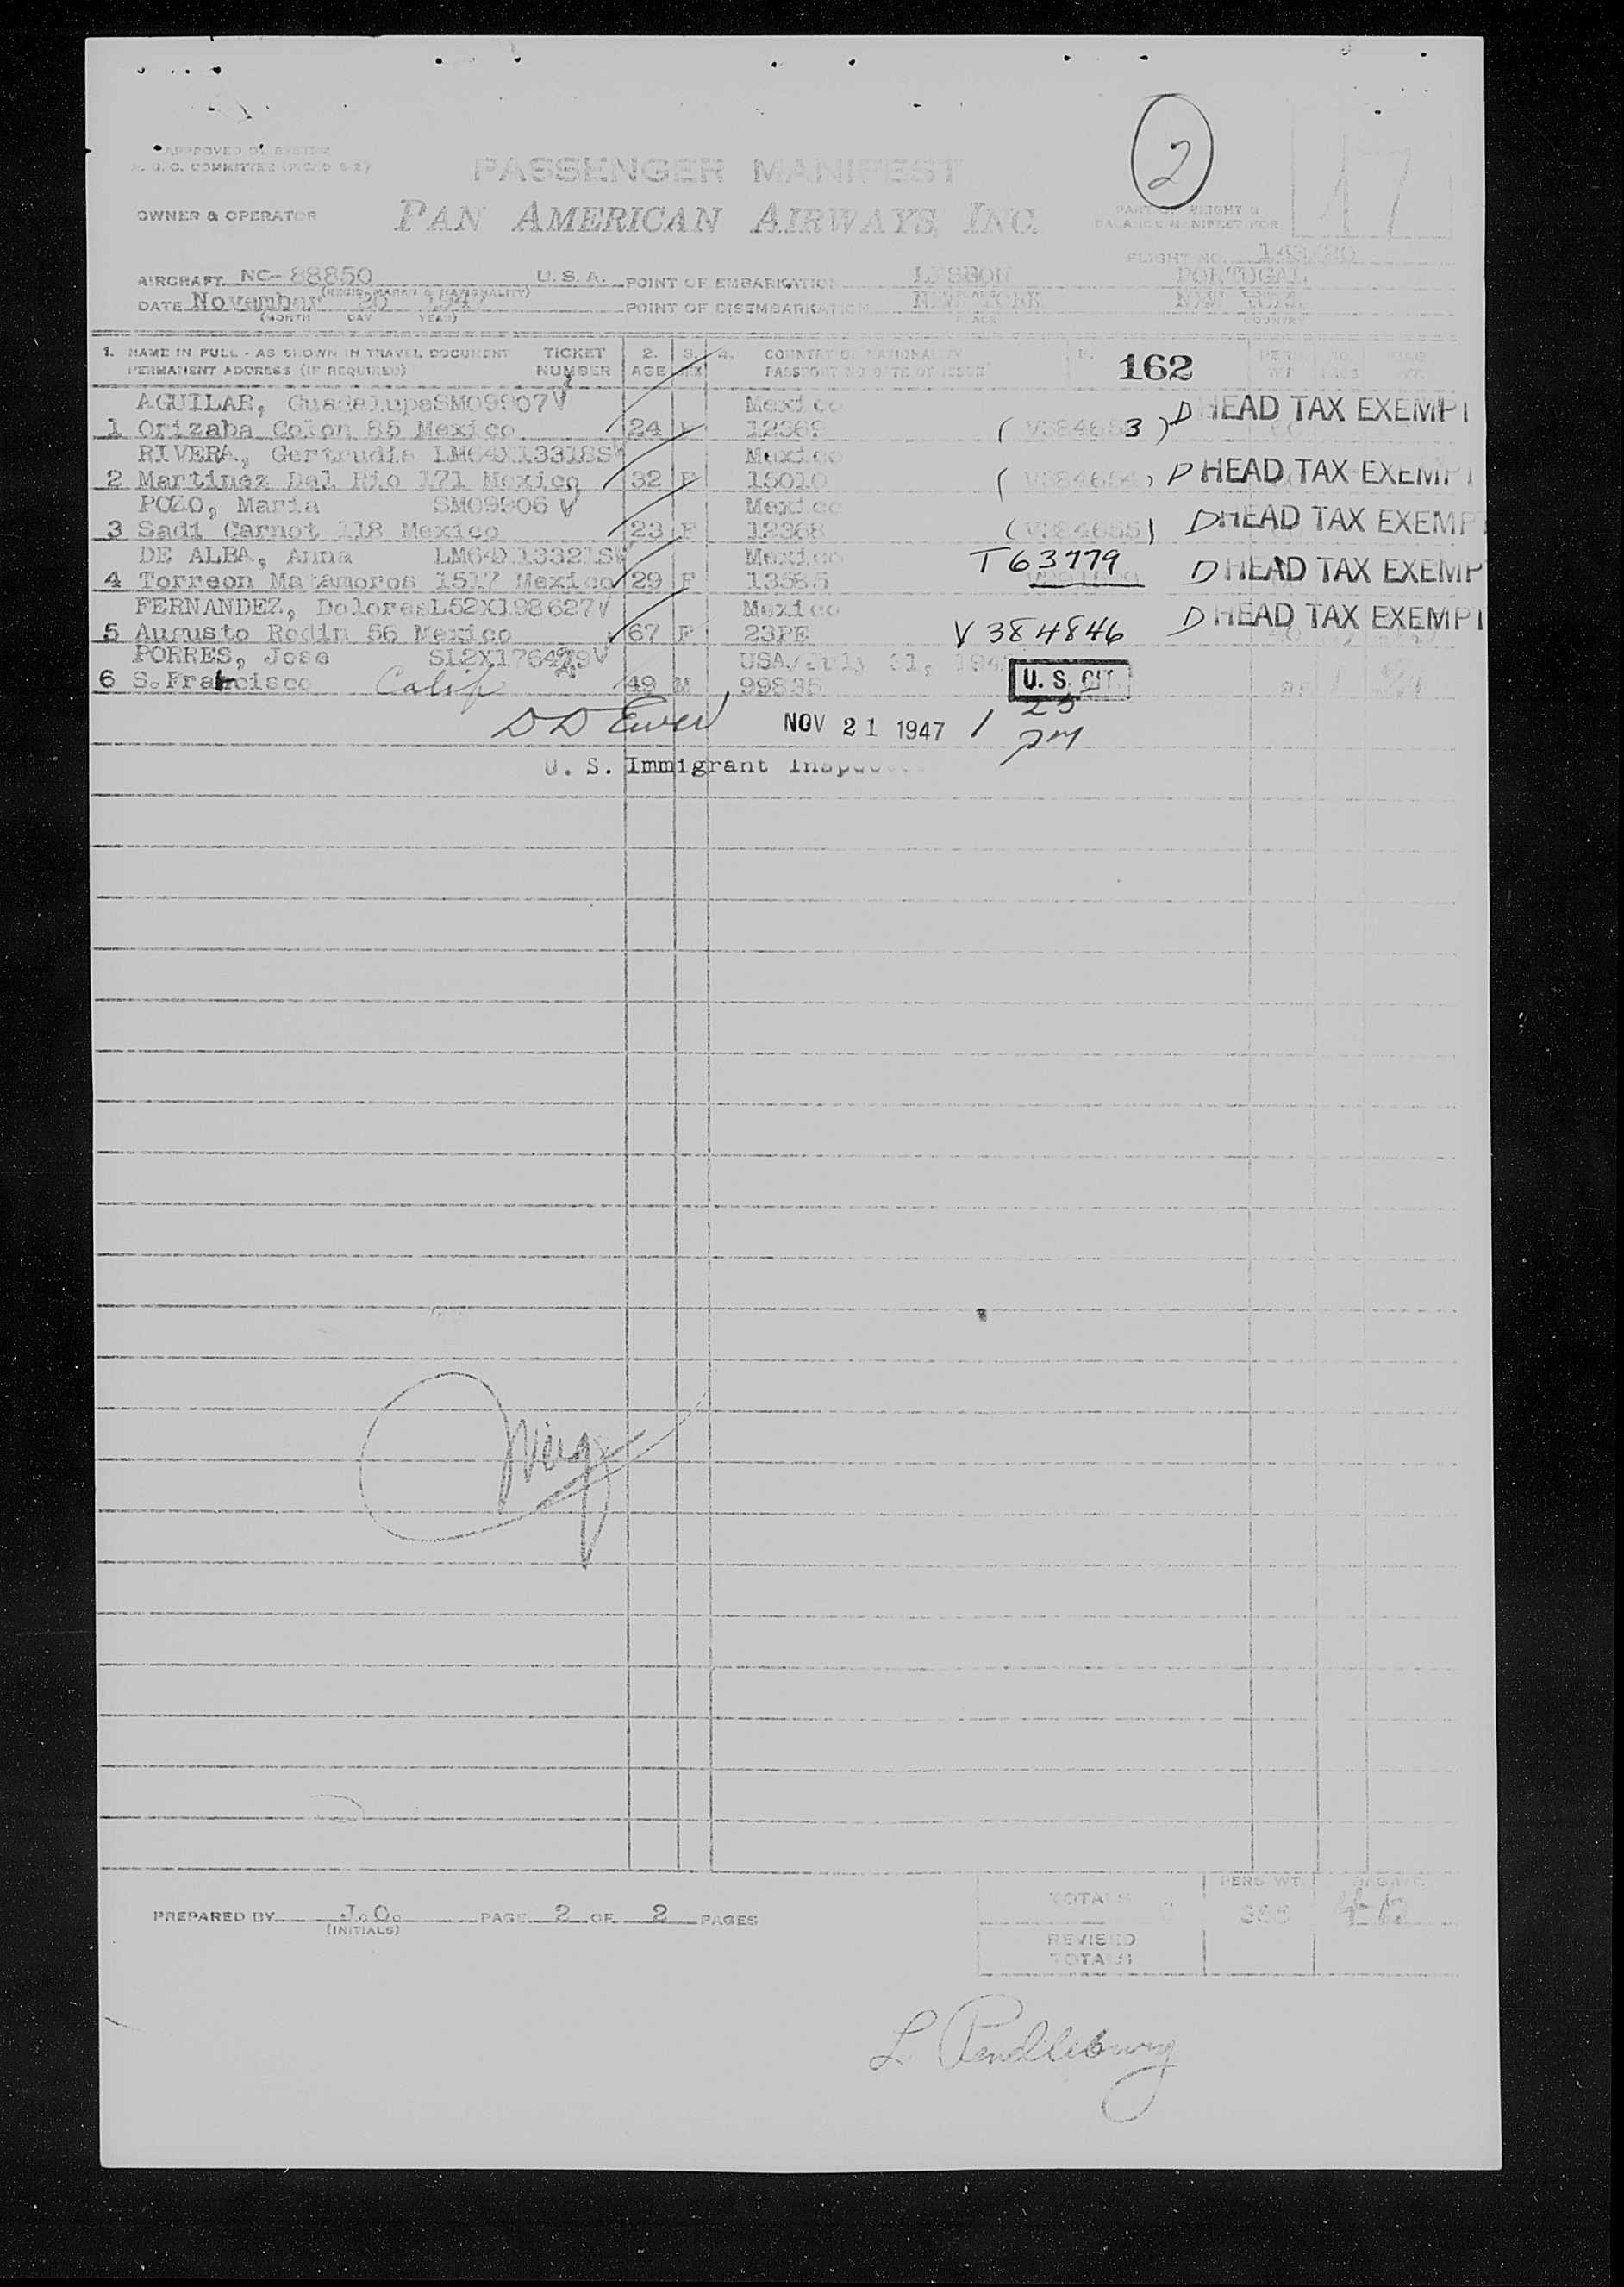 PASSENGER MANIFEST
2
17
OWNER & OPERATOR PAN AMERICAN AIRWAYS, INC.
FLIGHT NO.
AIRCRAFT NC-88850 U.S.A. POINT OF EMBARKATION LISBON PORTUGAL
(REGIS. MARKS & NATIONALITY)
DATE November 20 1947 POINT OF DISEMBARKATION NEW YORK NEW YORK
(MONTH DAY YEAR) PLACE COUNTRY
1. NAME IN FULL - AS SHOWN IN TRAVEL DOCUMENT TICKET 2. 3. 4. COUNTRY OF NATIONALITY 5. 162
PERMANENT ADDRESS (IF REQUIRED) NUMBER AGE SEX PASSPORT NO DATE OF ISSUE
AGUILAR, Guadalupe SM09907 V Mexico D HEAD TAX EXEMPT
1 Orizaba Colon 85 Mexico 24 F 12369 ( V384653 )
RIVERA, Gertrudis LM64X13318S Mexico
2 Martinez Del Rio 171 Mexico 32 F 15010 ( V384654 ) D HEAD TAX EXEMPT
POZO, Maria SM09906 V Mexico
3 Sadi Carnot 118 Mexico 23 F 12368 ( V384655 ) D HEAD TAX EXEMP
DE ALBA, Anna LM64X13321S Mexico T63779
4 Torreon Matamoros 1517 Mexico 29 F 13585 D HEAD TAX EXEMP
FERNANDEZ, Dolores L52X198627 V Mexico D HEAD TAX EXEMPT
5 Augusto Rodin 56 Mexico 67 F 23PE V 384846
PORRES, Jose USA/July 31, 194
6 S. Francisco Calif 49 M 99835 U. S. CIT.
D D Ewer NOV 21 1947 1 25 PM
U. S. Immigrant Inspector
PERS WT.
TOTALS
PREPARED BY J.O. PAGE 2 OF 2 PAGES
(INITIALS)
REVISED
TOTALS
L. Pendlebury